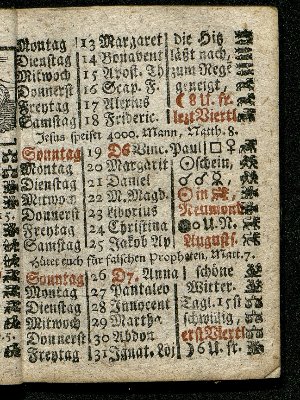 Montag 13 Margaret die Hitz
Dienstag 14 Bonavent läßt nach,
Mitwoch 15 Apost. Th zum Rege
Donnerst 16 Scap. F. geneigt,
Freytag 17 Alexius ☾ 8 U. fr.
Samstag 18 Frideric. letzt Viertl
Jesus speist 4000. Mann, Matth. 8.
Sonntag 19 D6 Vinc. Paul □ ♀
Montag 20 Margarit ☉schein,
Dienstag 21 Daniel ♂
Mitwoch 22 M. Magd. ☉ in
Donnerst 23 Liborius Neumond
Freytag 24 Christina U. N.
Samstag 25 Jakob Ap Augusti.
Hütet euch für falschen Propheten, Mat. 7.
Sonntag 26 D7. Anna schöne
Montag 27 Pantaleo Witter.
Dienstag 28 Innocent Tagl. 15 st
Mitwoch 29 Martha schwillig,
Donnerst 30 Abdon erst Viertl
Freytag 31 Ignat. Loj ☽ 6 U. fr.